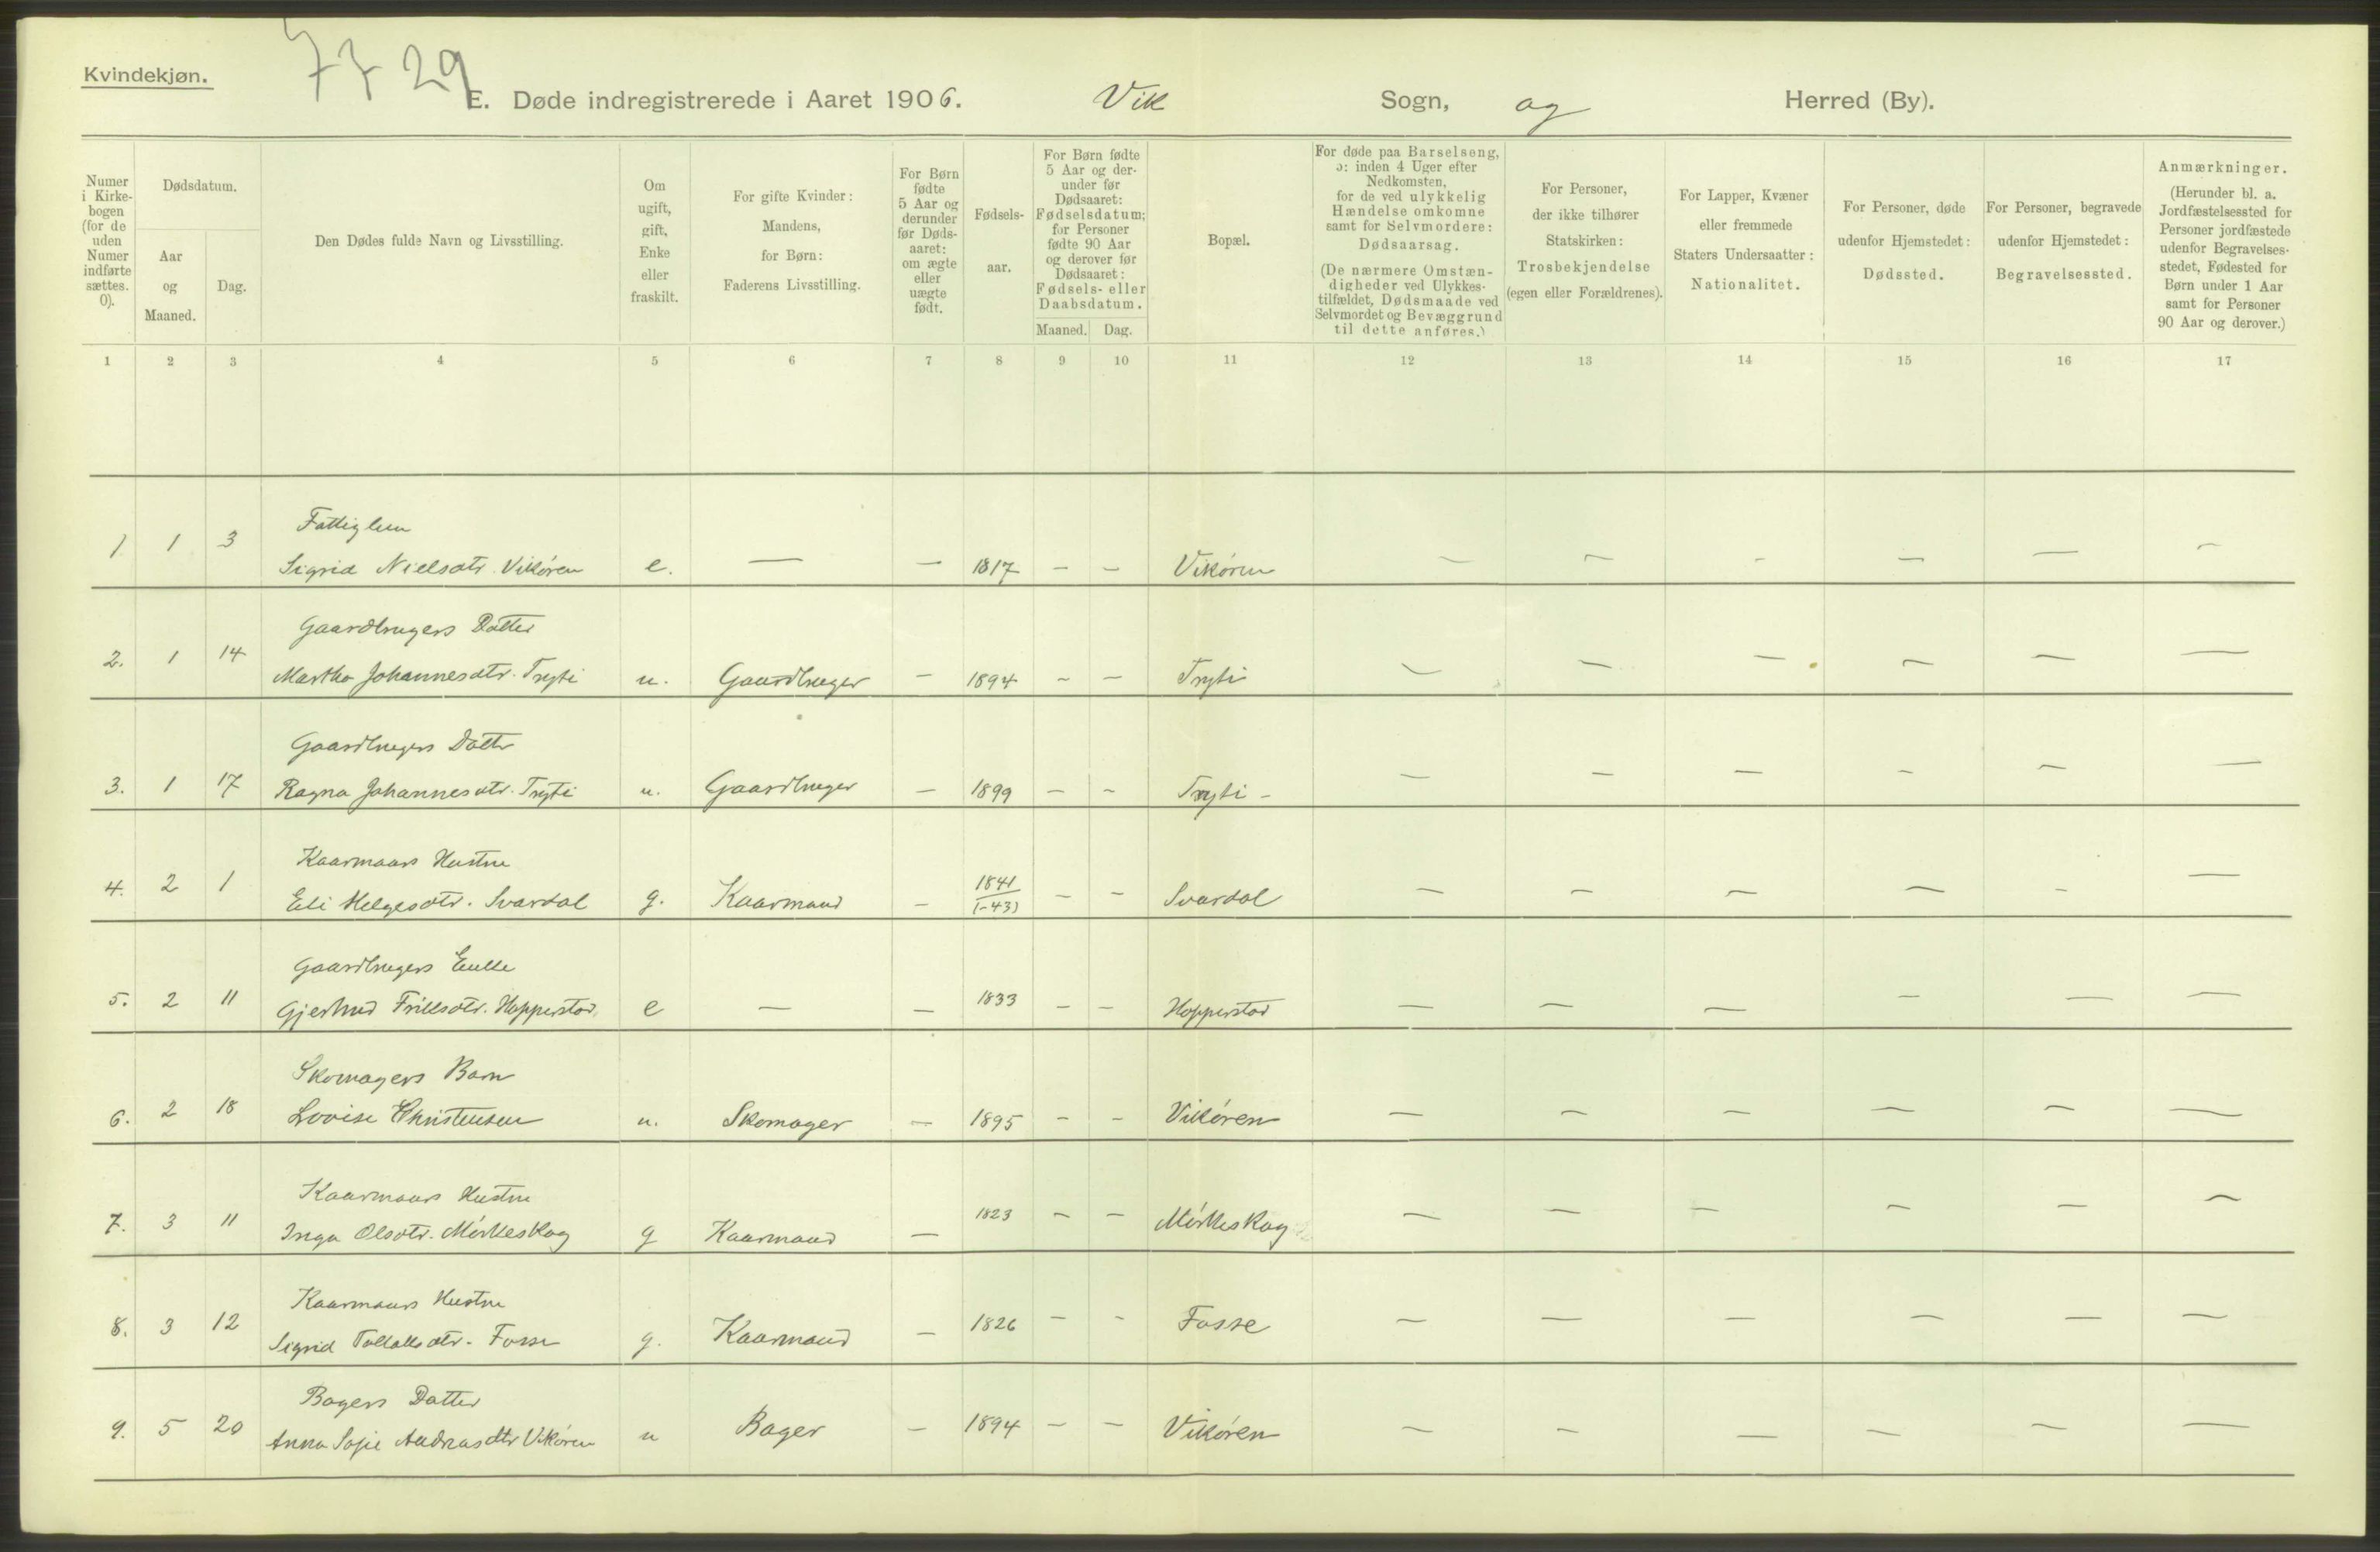 Kvindekjøn.
7729
E. Døde indregistrerede i Aaret 1906. Vik Sogn, og Herred (By).
Numer i Kirkebogen (for de uden Numer indførte sættes. 0).
Dødsdatum.
Aar og Maaned.
Dag.
Den Dødes fulde Navn og Livsstilling.
Om ugift, gift, Enke eller fraskilt.
For gifte Kvinder: Mandens, for Børn: Faderens Livsstilling.
For Børn fødte 5 Aar og derunder før Dødsaaret: om ægte eller uægte født.
Fødselsaar.
For Børn fødte 5 Aar og derunder før Dødsaaret: Fødselsdatum; for Personer fødte 90 Aar og derover før Dødsaaret: Fødsels- eller Daabsdatum.
Maaned. Dag.
Bopæl.
For døde paa Barselseng, ɔ: inden 4 Uger efter Nedkomsten, for de ved ulykkelig Hændelse omkomne samt for Selvmordere: Dødsaarsag.
(De nærmere Omstændigheder ved Ulykkestilfældet, Dødsmaade ved Selvmordet og Bevæggrund til dette anføres.)
For Personer, der ikke tilhører Statskirken: Trosbekjendelse (egen eller Forældrenes).
For Lapper, Kvæner eller fremmede Staters Undersaatter: Nationalitet.
For Personer, døde udenfor Hjemstedet: Dødssted.
For Personer, begravede udenfor Hjemstedet: Begravelsessted.
Anmærkninger.
(Herunder bl. a. Jordfæstelsessted for Personer jordfæstede udenfor Begravelsesstedet, Fødested for Børn under 1 Aar samt for Personer 90 Aar og derover.)
1 2 3 4 5 6 7 8 9 10 11 12 13 14 15 16 17
Fattiglem
1 1 3 Sigrid Nielsdtr. Vikøren e. — — 1817 — — Vikøren — — — — — —
Gaardbrugers Datter
2. 1 14 Martha Johannesdtr. Tryti u. Gaardbruger — 1894 — — Tryti — — — — — —
Gaardbrugers Datter
3. 1 17 Ragna Johannesdtr. Tryti u. Gaardbruger — 1899 — — Tryti — — — — — — —
Kaarmans Hustru
4. 2 1 Eli Helgesdtr. Svardal g. Kaarmand — 1841 (-43) — — Svardal — — — — — —
Gaardbrugers Enke
5. 2 11 Gjertrud Friksdtr. Hopperstad e — — 1833 — — Hopperstad — — — — — —
Skomagers Barn
6. 2 18 Lovise Christensen u. Skomager — 1895 — — Vikøren — — — — — —
Kaarmans Hustru
7. 3 11 Inga Olsdtr. Mörkeskog g Kaarmand — 1823 — — Mörkeskog — — — — — —
Kaarmans Hustru
8. 3 12 Sigrid dtr. Fosse g. Kaarmand — 1826 — — Fosse — — — — — —
Bagers Datter
9. 5 20 Anna Sofie Andreasdtr Vikøren u Bager — 1894 — — Vikøren — — — — — —